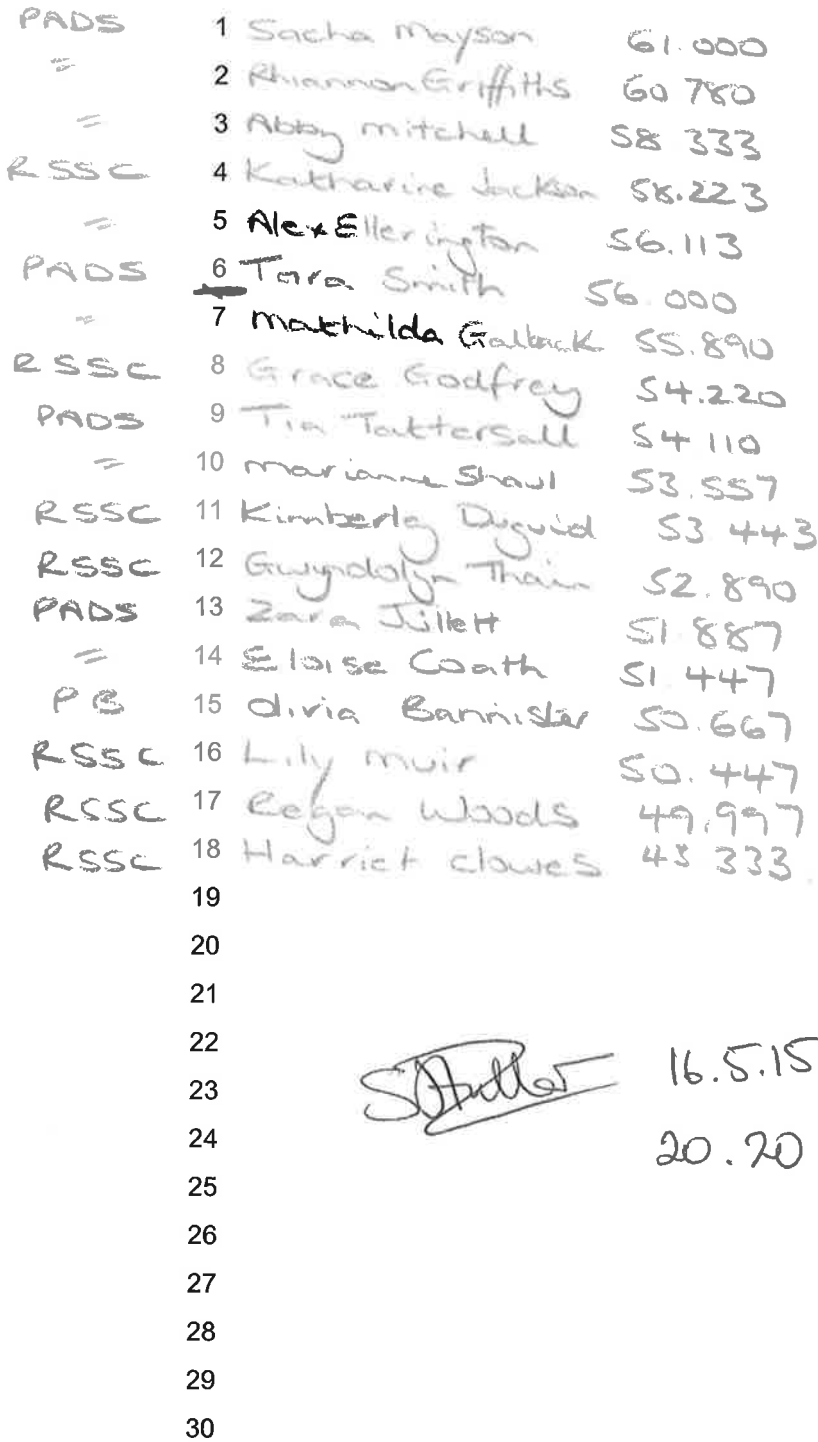 PADS 1 Sacha Mayson 61.000
= 2 Rhiannon Griffiths 60 780
= 3 Abby mitchell 58 333
RSSC 4 Katharine Jackson 58.223
= 5 Alex Ellerington 56.113
PADS 6 Tara Smith 56.000
= 7 Mathilda 55.890
RSSC 8 Grace Godfrey 54.220
PADS 9 Tia Tattersall 54 110
= 10 marianne Shawl 53.557
RSSC 11 Kimberley Duguid 53 443
RSSC 12 Gwyndolyn Thain 52.890
PADS 13 Zara Jillett 51 887
= 14 Eloise Coath 51 447
PB 15 Olivia Bannister 50.667
RSSC 16 Lily muir 50.447
RSSC 17 Regan Woods 49.997
RSSC 18 Harriet clowes 43 333
19
20
21
22
23 16.5.15
24 20.20
25
26
27
28
29
30